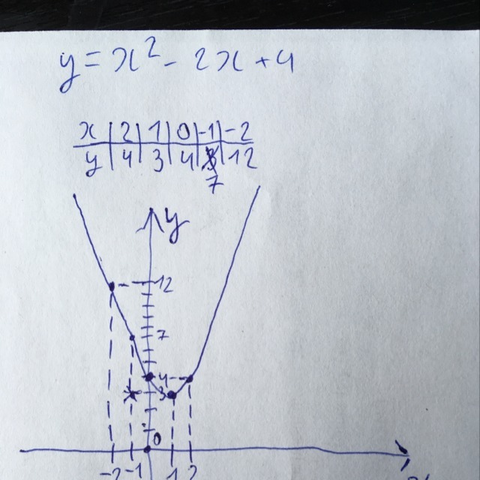 y = x² - 2x + 4
x | 2 | 1 | 0 | -1 | -2
y | 4 | 3 | 4 | | 12
7
y
12
7
4
3
0
-2 -1 1 2